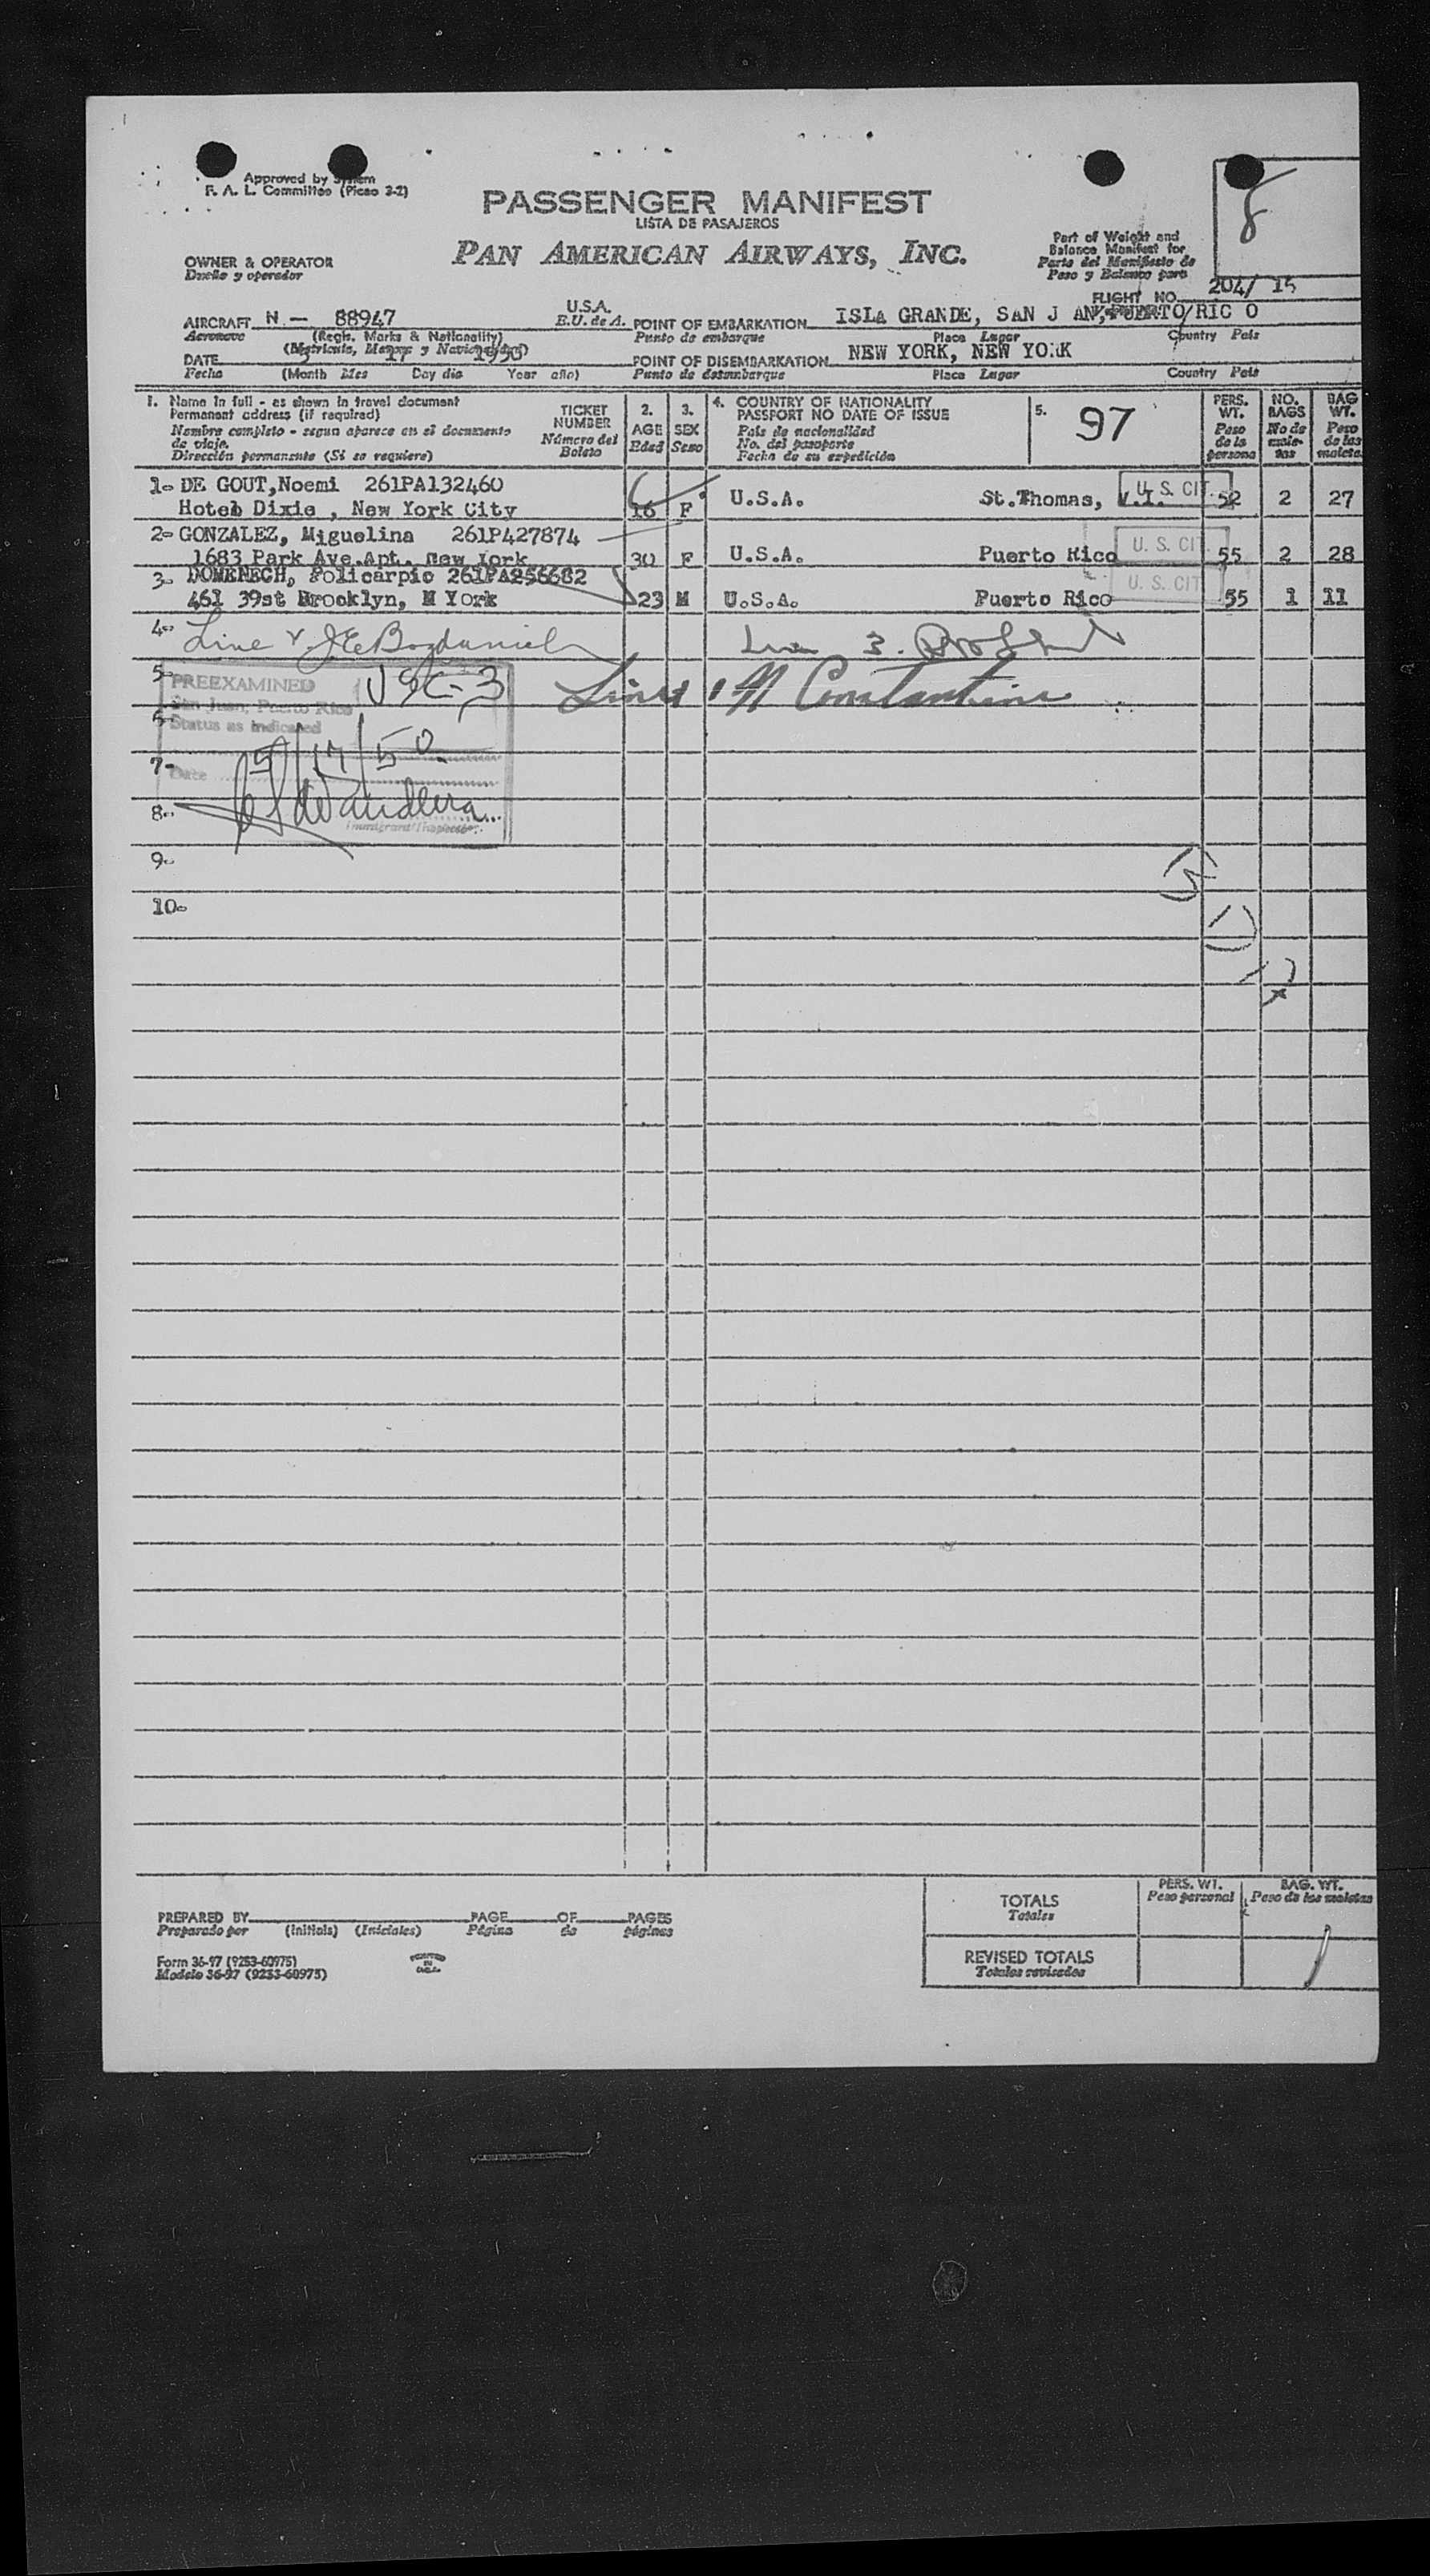 Approved by System
F. A. L. Committee (Picao 3-2)
PASSENGER MANIFEST
LISTA DE PASAJEROS
PAN AMERICAN AIRWAYS, INC.
8
Part of Weight and
Balance Manifest for
Parte del Manifiesto de
Peso y Balance para
OWNER & OPERATOR
Dueño y operador
FLIGHT NO. 204/ 15
AIRCRAFT N - 88947
Aeronave
(Regis. Marks & Nationality)
(Matricula, Marcas y Nacionalidad)
U.S.A.
E.U. de A.
POINT OF EMBARKATION ISLA GRANDE, SAN J AN, PUERTO RIC O
Punto de embarque Place Lugar Country Pais
DATE 5 17 1950
Fecha (Month Mes Day dia Year año)
POINT OF DISEMBARKATION NEW YORK, NEW YORK
Punto de desembarque Place Lugar Country Pais
1. Name in full - as shown in travel document
Permanent address (if required)
Nombre completo - segun aparece en el documento
de viaje.
Dirección permanente (Si se requiere)
TICKET
NUMBER
Número del
Boleto
2.
AGE
Edad
3.
SEX
Sexo
4. COUNTRY OF NATIONALITY
PASSPORT NO DATE OF ISSUE
Pais de nacionalidad
No. del pasaporte
Fecha de su expedición
5. 97
PERS.
WT.
Peso
de la
persona
NO.
BAGS
No de
male-
tas
BAG
WT.
Peso
de las
maletas
1- DE GOUT,Noemi 261PA132460
Hoteb Dixie , New York City 16 F U.S.A. St.Thomas, V.I. U. S. CIT. 52 2 27
2- GONZALEZ, Miguelina 261P427874
1683 Park Ave.Apt. New York 30 F U.S.A. Puerto Rico U. S. CIT. 55 2 28
3- DOMENECH, Policarpio 261PA256682
461 39st Brooklyn, N York 23 M U.S.A. Puerto Rico U. S. CIT. 55 1 11
4-
Line
5-
PREEXAMINED USC-3
Line 1 M Constantine
San Juan, Puerto Rico
6-
Status as indicated
7-
Date 5/17/50
8-
Immigrant Inspector.
9-
10-
TOTALS
Totales
PERS. WT.
Peso personal
BAG. WT.
Peso de las maletas
REVISED TOTALS
Totales revisados
PREPARED BY PAGE OF PAGES
Preparado por (Initials) (Iniciales) Página de páginas
Form 36-97 (9253-60975)
Modelo 36-97 (9253-60975)
PRINTED
IN
U.S.A.